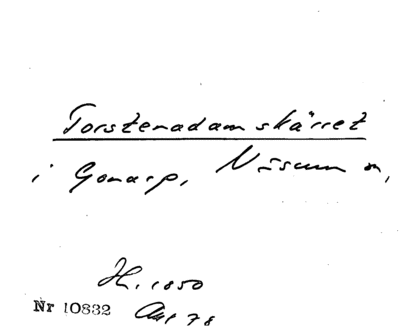 Torstenadamskärret
i Gonarp, Näsum sn,
H. 1850
Nr 10832 Akt 78